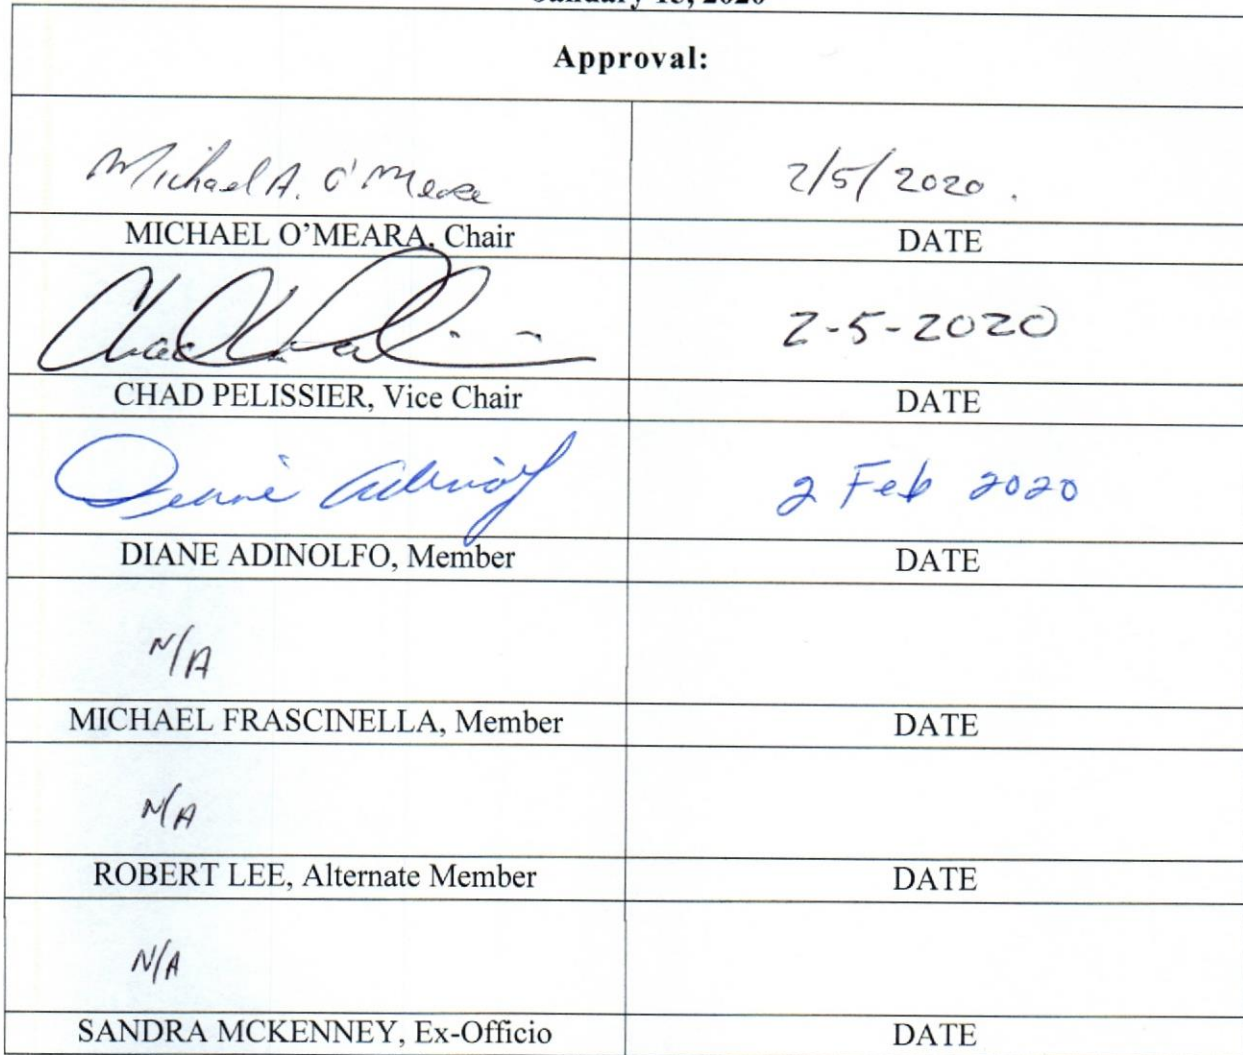 January 15, 2020
Approval:
Michael A. O'Meara 2/5/2020.
MICHAEL O'MEARA, Chair DATE
2-5-2020
CHAD PELISSIER, Vice Chair DATE
Diane Adinolfo 2 Feb 2020
DIANE ADINOLFO, Member DATE
N/A
MICHAEL FRASCINELLA, Member DATE
N/A
ROBERT LEE, Alternate Member DATE
N/A
SANDRA MCKENNEY, Ex-Officio DATE